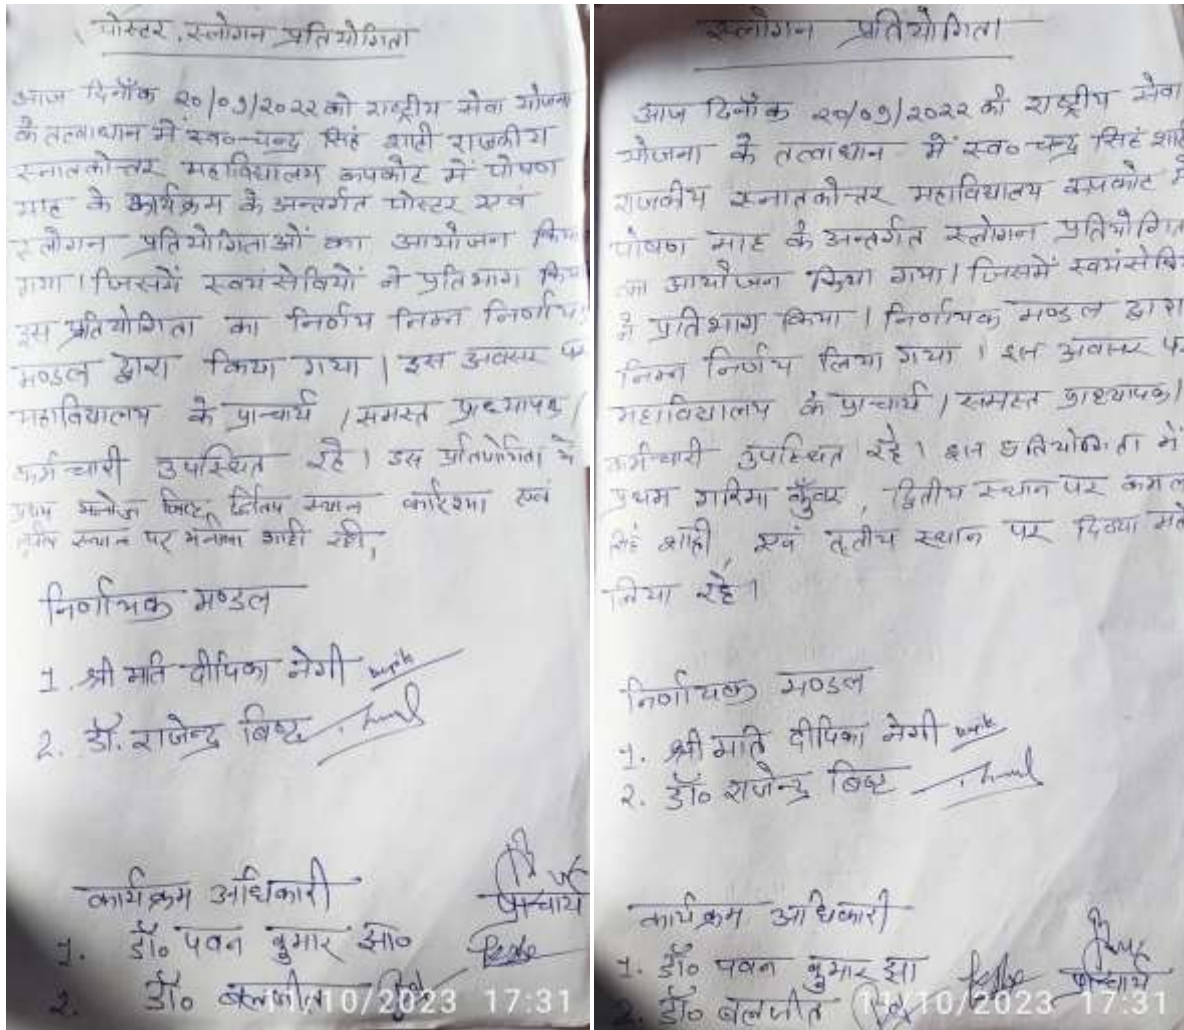 पोस्टर, स्लोगन प्रतियोगिता
आज दिनाँक २०/०९/२०२२ को राष्ट्रीय सेवा योजना
के तत्वाधान में स्व०-चन्द्र सिहं शाही राजकीय
स्नातकोत्तर महाविद्यालय कपकोट में पोषण
माह के कार्यक्रम के अन्तर्गत पोस्टर एवं
स्लोगन प्रतियोगिताओं का आयोजन किया
गया। जिसमें स्वयंसेवियों ने प्रतिभाग किया
इस प्रतियोगिता का निर्णय निम्न निर्णायक
मण्डल द्वारा किया गया। इस अवसर पर
महाविद्यालय के प्राचार्य / समस्त प्राध्यापक /
कर्मचारी उपस्थित रहे। इस प्रतियोगिता में
प्रथम मनोज बिष्ट, द्वितीय स्थान करिश्मा एवं
तृतीय स्थान पर शाही रही,
निर्णायक मण्डल
1. श्री मति दीपिका नेगी
2. डॉ. राजेन्द्र बिष्ट
कार्यक्रम अधिकारी
प्राचार्य
1. डॉ० पवन कुमार झा०
2. डॉ० बलजीत
11/10/2023 17:31
स्लोगन प्रतियोगिता
आज दिनाँक २०/०९/२०२२ को राष्ट्रीय सेवा
योजना के तत्वाधान में स्व०-चन्द्र सिहं शाही
राजकीय स्नातकोत्तर महाविद्यालय कपकोट में
पोषण माह के अन्तर्गत स्लोगन प्रतियोगिता
का आयोजन किया गया। जिसमें स्वयंसेवि
ने प्रतिभाग किया। निर्णायक मण्डल द्वारा
निम्न निर्णय लिया गया। इस अवसर पर
महाविद्यालय के प्राचार्य / समस्त प्राध्यापक /
कर्मचारी उपस्थित रहे। इस प्रतियोगिता में
प्रथम गरिमा कुँवर, द्वितीय स्थान पर कमल
सिहं शाही, एवं तृतीय स्थान पर दिव्या मते
लिया रहे।
निर्णायक मण्डल
1. श्री मति दीपिका नेगी
2. डॉ० राजेन्द्र बिष्ट
कार्यक्रम अधिकारी
1. डॉ० पवन कुमार झा
प्राचार्य
2. डॉ० बलजीत
11/10/2023 17:31